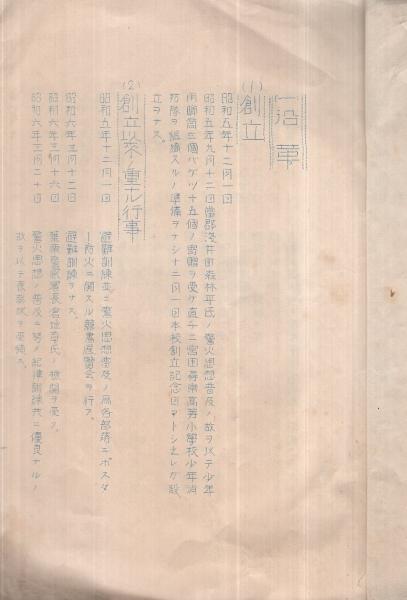 一、沿革
(1) 創立
昭和五年十二月一日
昭和五年九月十二日當郡淺井町森林平氏ノ警火思想普及ノ故ヲ以テ少年
用 筒 個バケツ十五個ノ寄贈ヲ受ケ直チニ宮田尋常高等小學校少年消
防隊ヲ組織スルノ準備ヲナシ十二月一日本校創立記念日ヲトシ之レガ設
立ヲナス。
(2) 創立以來ノ重ナル行事
昭和五年十二月一日 避難訓練並ニ警火思想普及ノ爲各部落ニポスタ
ー防火ニ關スル展覽會ヲ行フ。
昭和六年三月十二日 避難訓練ヲナス。
昭和六年三月十六日 葉栗警察署長 氏ノ檢閲ヲ受ク。
昭和六年三月二十日 警火思想ノ普及ニ努メ紀律訓練共ニ優良ナルノ
故ヲ以テ表彰狀ヲ受領ス。